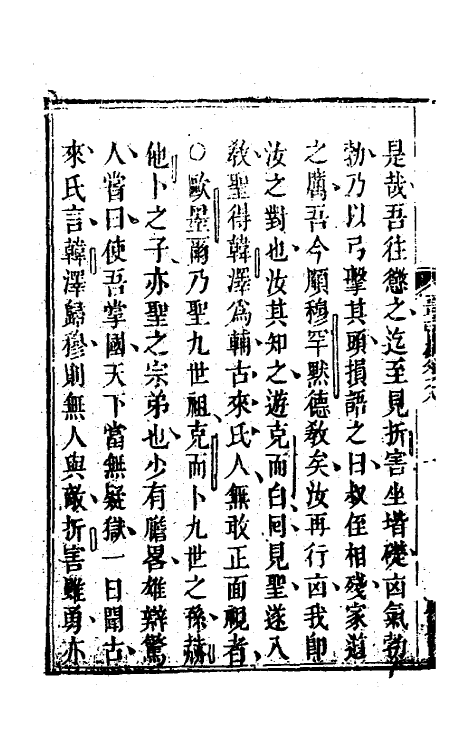 是哉吾往懲之迄至見折害坐堦礎凶氣勃
勃乃以弓擊其頭損語之曰叔侄相殘家道
之厲吾今順穆罕默德教矣汝再行凶我即
汝之對也汝其知之遊克而白同見聖遂入
教聖得韓澤為輔古來氏人無敢正面視者
○歐墨爾乃聖九世祖克而卜九世之孫赫
他卜之子亦聖之宗弟也少有膽畧雄辯驚
人嘗曰使吾掌國天下當無疑獄一日聞古
來氏言韓澤歸穆則無人與敵折害雖勇亦